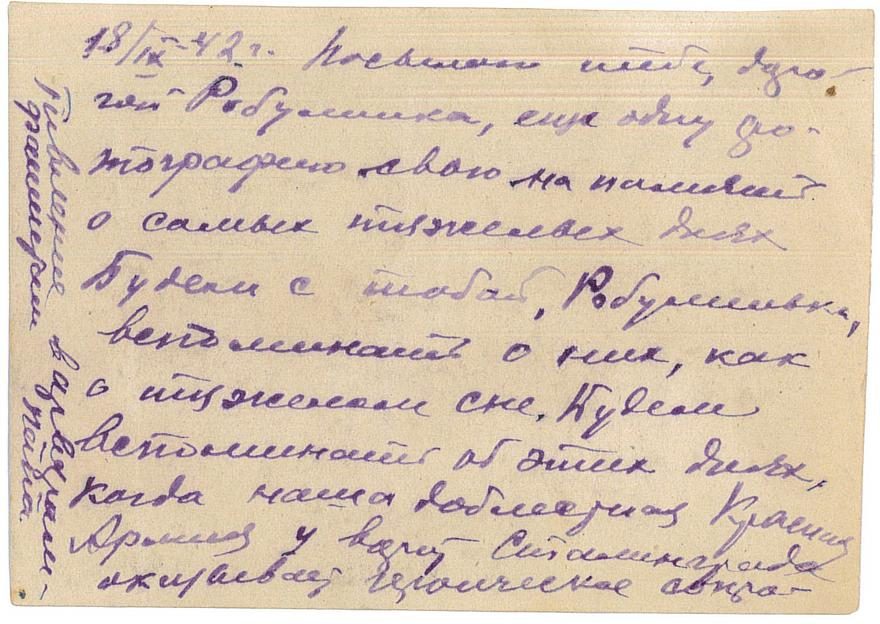 18/IX-42 г. Посылаю тебе, доро-
гой Робулинька, еще одну фо-
тографию свою на память
о самых тяжелых днях
Будем с тобой, Робулинька,
вспоминать о них, как
о тяжелом сне. Будем
вспоминать об этих днях,
когда наша доблестная Красная
Армия у ворот Сталинграда
оказывает героическое сопро-
тивление варварам-
фашистам папа